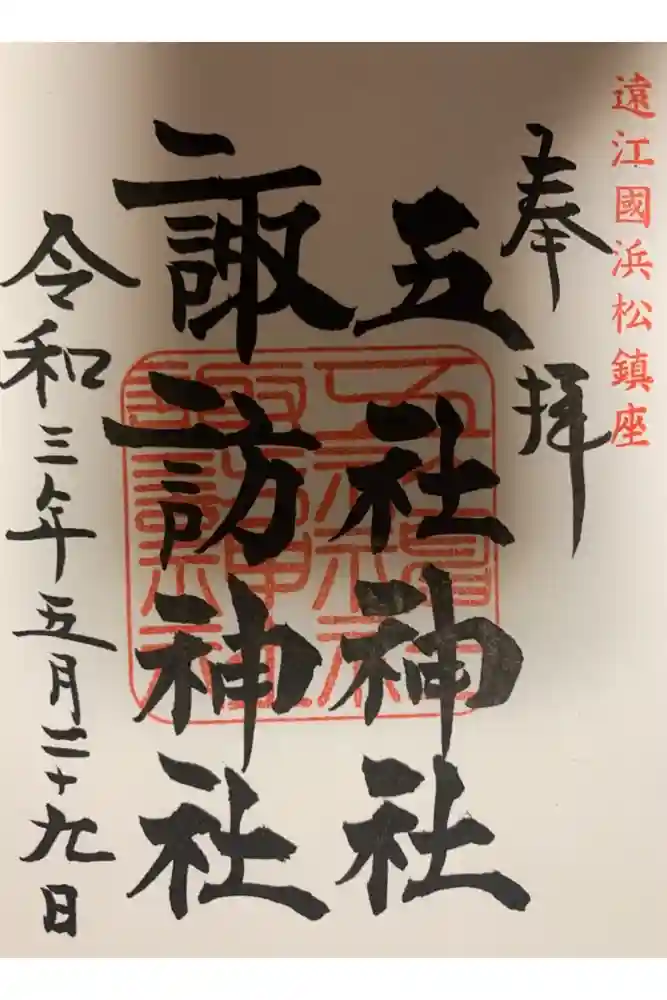 遠江國浜松鎮座
奉拝
五社神社
諏訪神社
令和三年五月二十九日